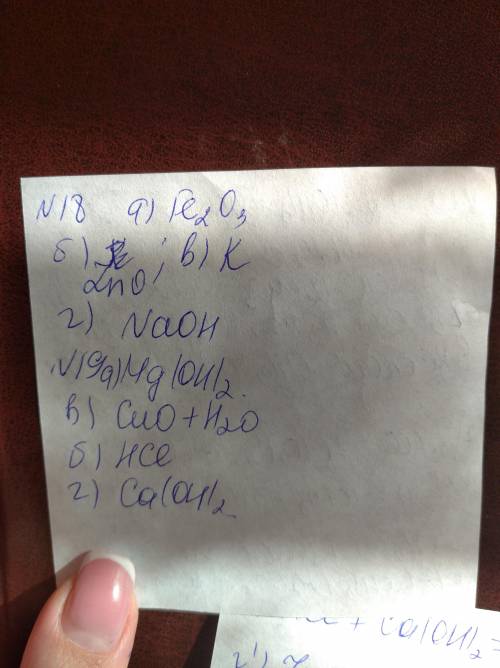 N18 а) Fe2O3
б) ; в) K
ZnO;
г) NaOH
N19 а) Mg(OH)2.
в) CuO + H2O
б) HCl
г) Ca(OH)2
+ Ca(OH)2 =